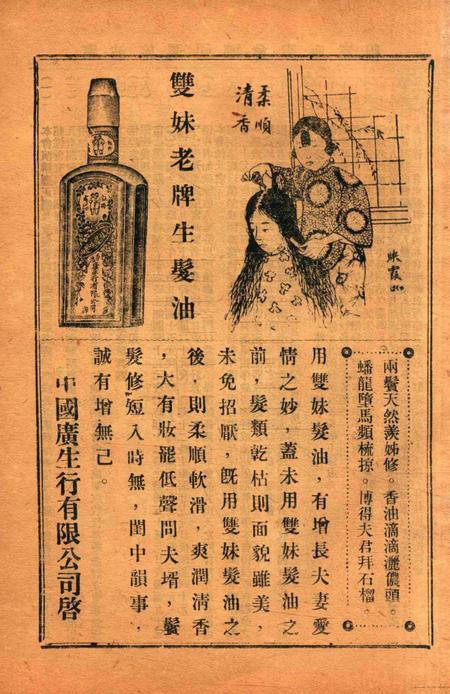 柔順
清香
雙妹老牌生髮油
兩鬢天然羨姊修。香油滴滴灑儂頭。
蟠龍墮馬頻梳掠。博得夫君拜石榴。
用雙妹髮油，有增長夫妻愛
情之妙，蓋未用雙妹髮油之
前，髮類乾枯則面貌雖美，
未免招厭，旣用雙妹髮油之
後，則柔順軟滑，爽潤淸香
，大有妝罷低聲問夫壻，鬢
髮修短入時無，閨中韻事，
誠有增無已。
中國廣生行有限公司啓